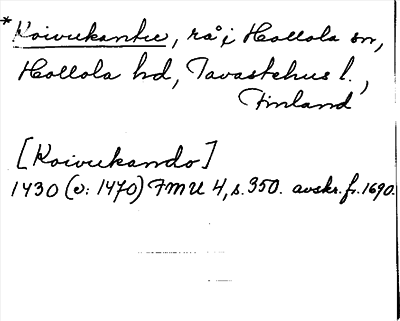 *Koivukanto, rå i Hollola sn,
Hollola hd, Tavastehus l.,
Finland
[Koivukando]
1430 (v: 1470) FMU 4, s. 350. avskr. fr. 1690.